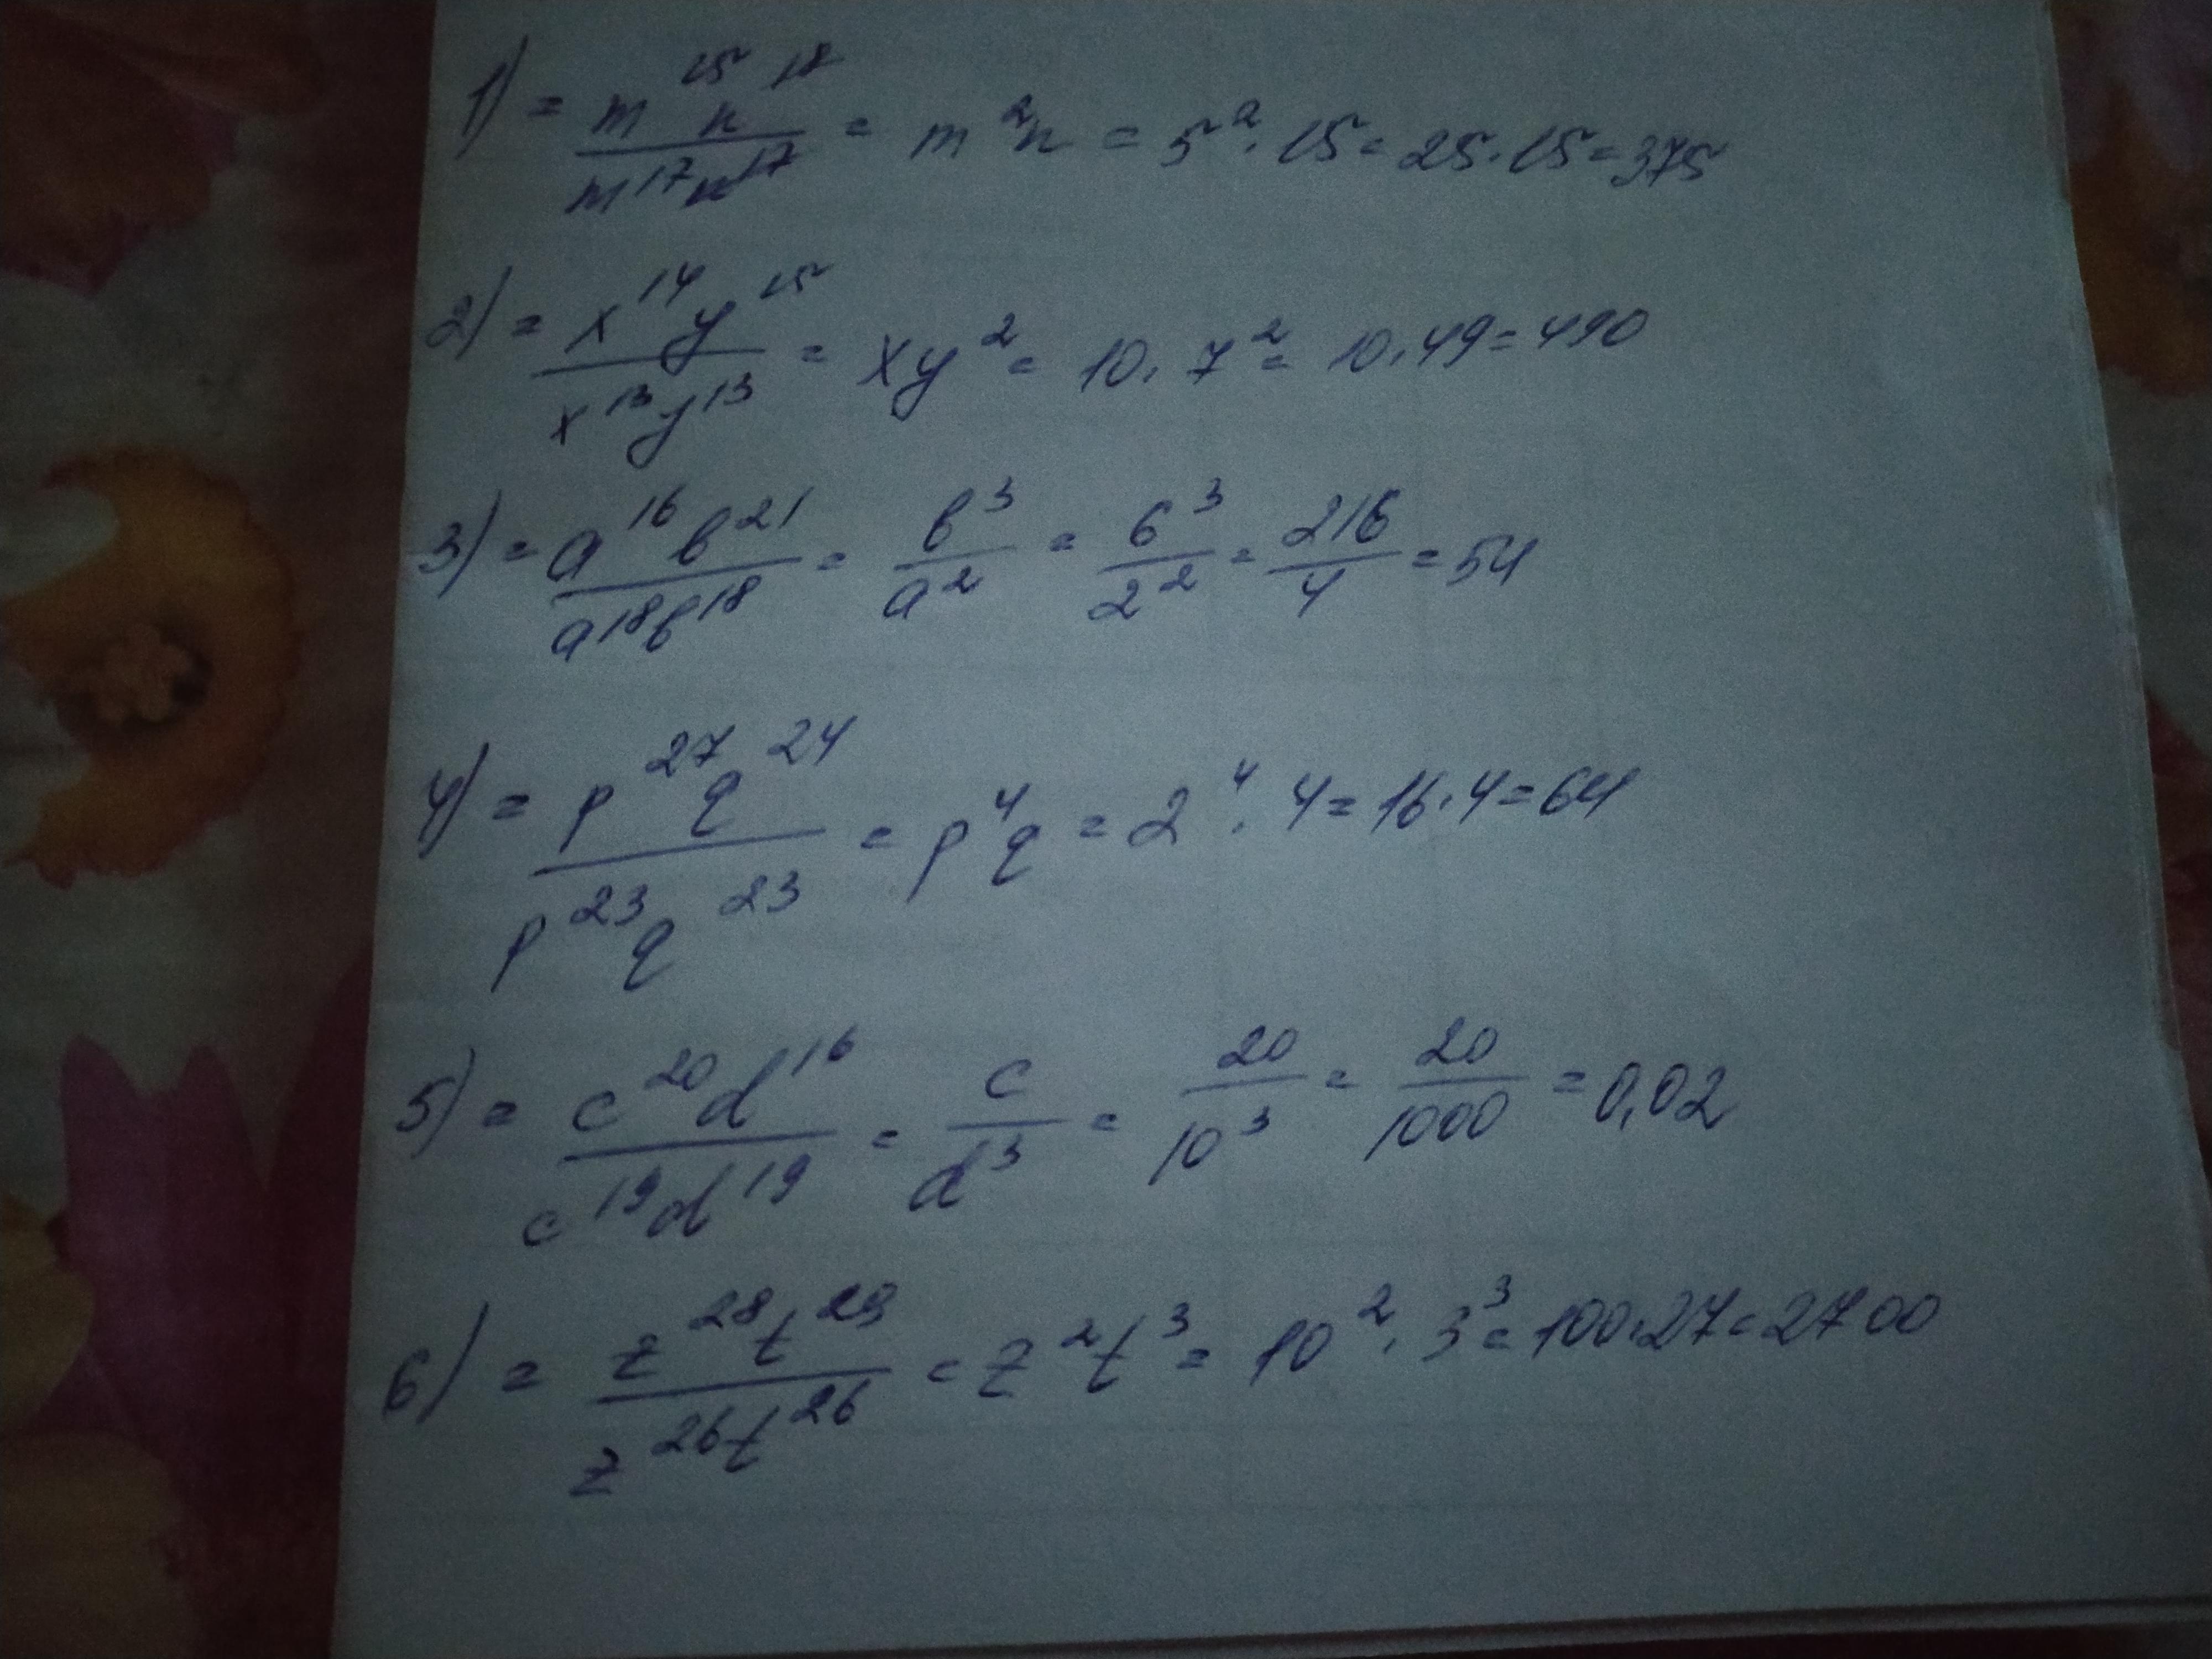 1) = m^15 n^18 / m^17 n^17 = m^2 n = 5^2 · 15 = 25 · 15 = 375
2) = x^14 y^15 / x^13 y^13 = xy^2 = 10 · 7^2 = 10 · 49 = 490
3) = a^16 b^21 / a^18 b^18 = b^3 / a^2 = 6^3 / 2^2 = 216 / 4 = 54
4) = p^27 q^24 / p^23 q^23 = p^4 q = 2^4 · 4 = 16 · 4 = 64
5) = c^20 d^16 / c^19 d^19 = c / d^3 = 20 / 10^3 = 20 / 1000 = 0,02
6) = z^28 t^29 / z^26 t^26 = z^2 t^3 = 10^2 · 3^3 = 100 · 27 = 2700